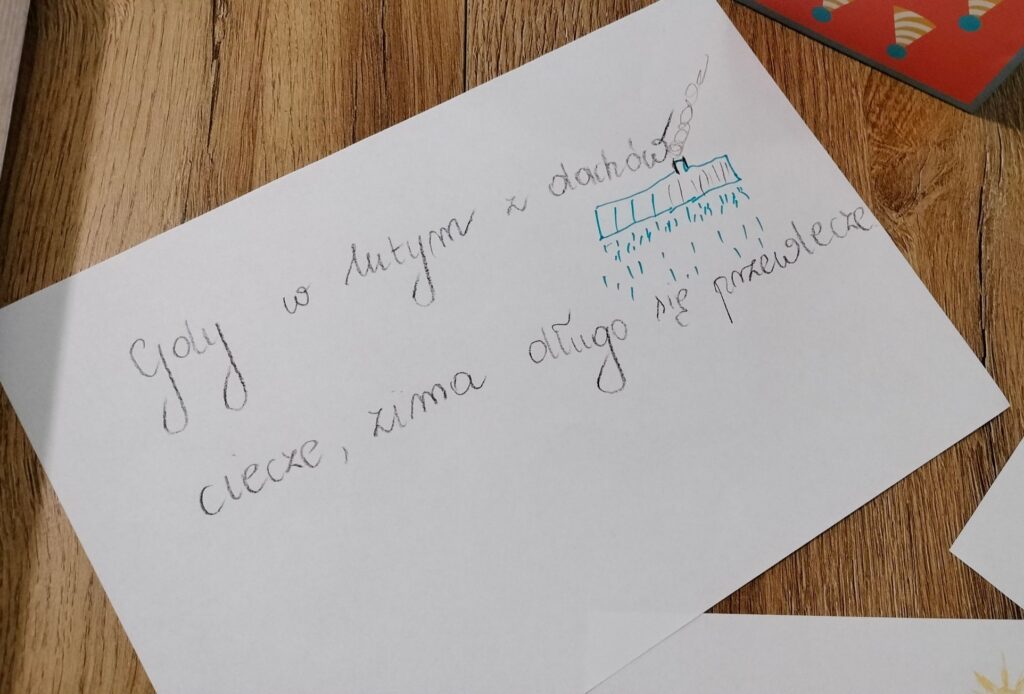 Gdy w lutym z dachów
ciecze, zima długo się przewlecze.